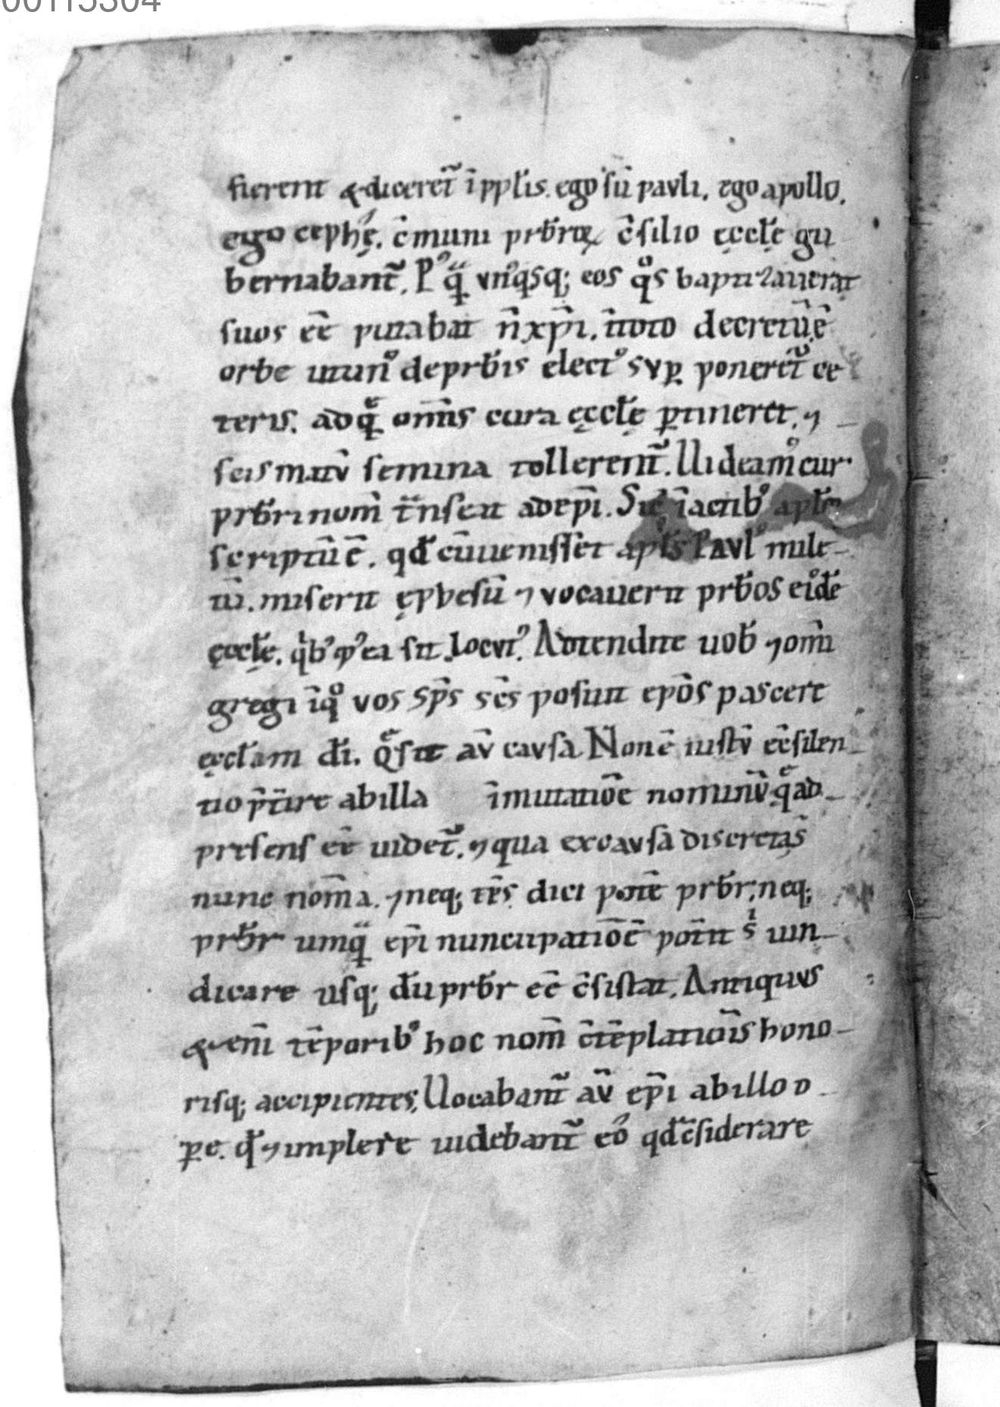 00115304
fierent &diceret᷑ ī ppl̄is. ego sū pauli, ego apollo,
ego cephę, c̄muni prb̄roꝝ c̄silio ęccl̄ę gu
bernabant᷑. P᷒ q̄ vn᷒qsq; eos qͦs baptizauerat
suos eē putabat n̄ xp̄i, ī toto decretū ē
orbe ut un᷒ de prb̄is elect᷒ sup poneret᷑ ce
teris. ad quē om̄is cura ęccl̄ę ꝑtineret, ⁊
scismatū semina tollerent᷑. Uideam᷒ cur
prb̄ri nom̄ t̄nseat ad ep̄i. Sic ī actib᷒ apl̄oꝝ
scriptū ē. qd̄ cū uenisset apl̄s Paul᷒ mile
tū. miserit ęphesū ⁊ vocauerit prb̄os eiᷤdē
ęccl̄ę. qͥb᷒ p᷒ ea sit locut᷒. Adtendite uob̄ ⁊ om̄i
gregi ī qͦ vos sp̄s sc̄s posuit ep̄os pascere
ęccl̄am dī. Q̄ sit aū causa Non ē iustū c̄silen
tio p̄tire ab illa ī mutatiōe nominū q̄ ad
presens eē uidet᷑. ⁊ qua ex causa discretaſ̄
nunc nom̄a. ⁊ neq; tr̄s dici potē prb̄r, neq;
prb̄r umq̄ ep̄i nuncupatiōē pot̄it sͥ uin
dicare usq; dū prb̄r eē c̄sistat. Antiquus
&enī tēporib᷒ hoc nom̄ c̄tēplatiōis hono
risq; accipientes, Uocabant᷑ aū ep̄i ab illo o
ꝑe. qd̄ ⁊ implere uidebant᷑ eo᷒ qd̄ c̄siderare